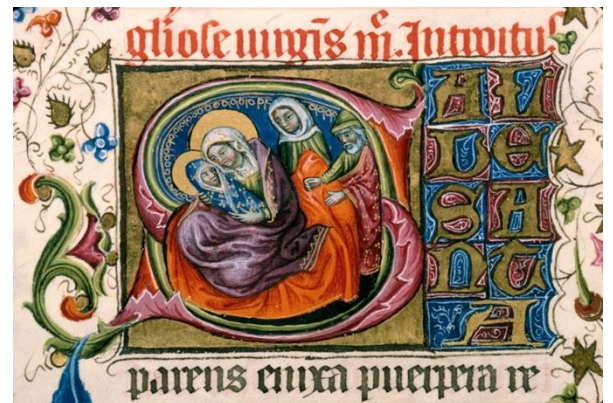 gl̄iose uirgīs m̄. Introitus
S AL
VE
SA
NCT
A
parens enixa puerpera re